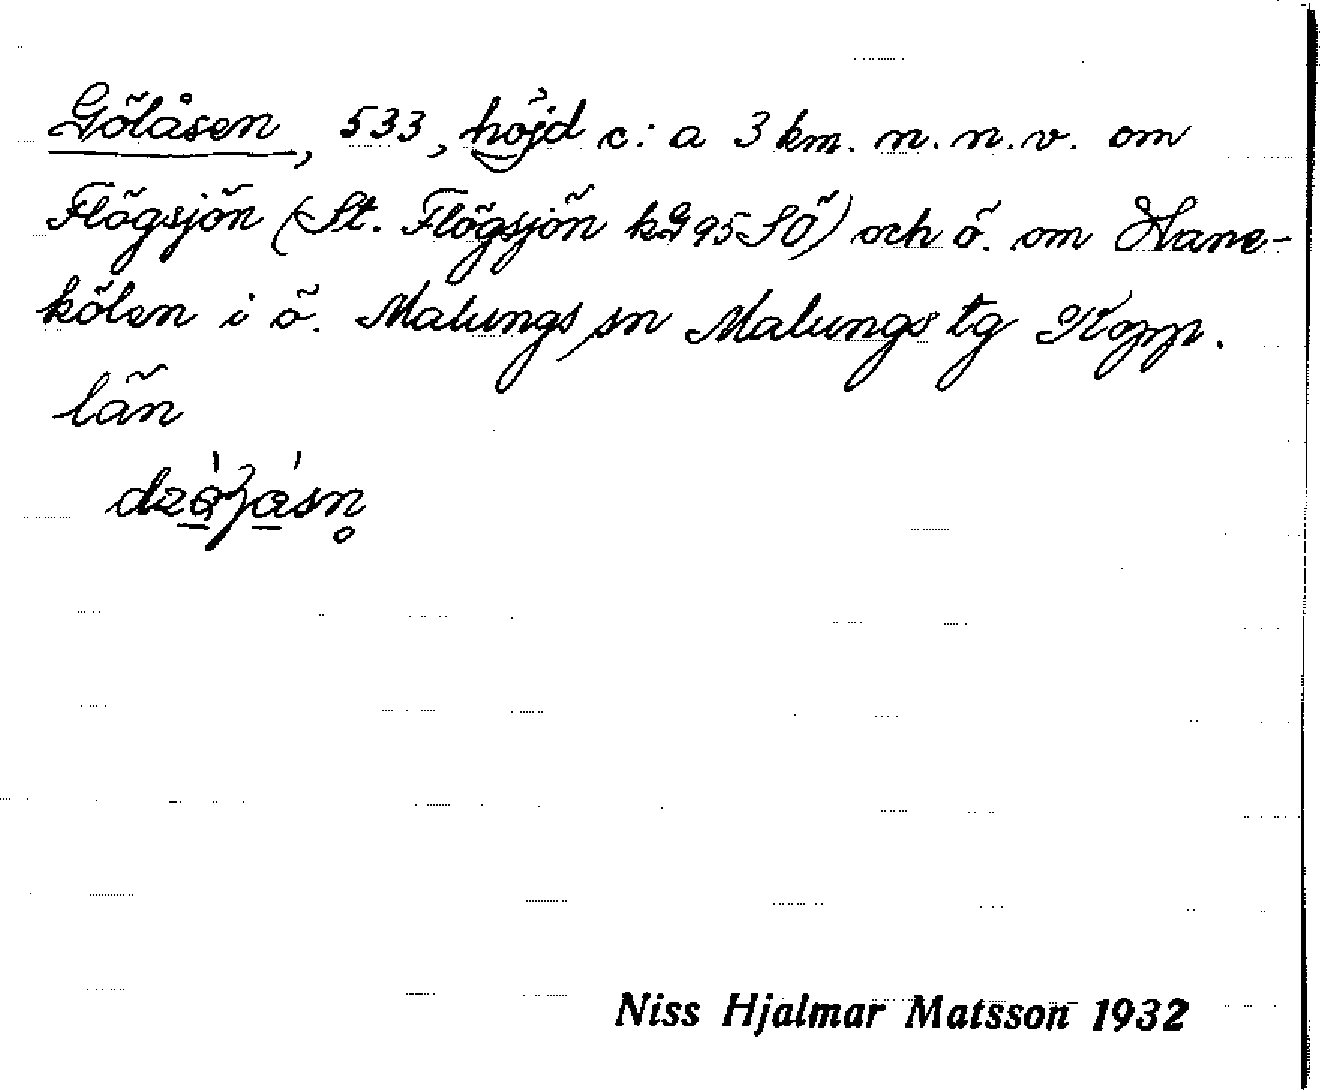 Gölåsen, 533, höjd c:a 3 km. n.n.v. om
Flögsjön (St. Flögsjön kg 95 SÖ) och ö. om Hane-
kölen i ö. Malungs sn Malungs tg Kopp.
län
Niss Hjalmar Matsson 1932